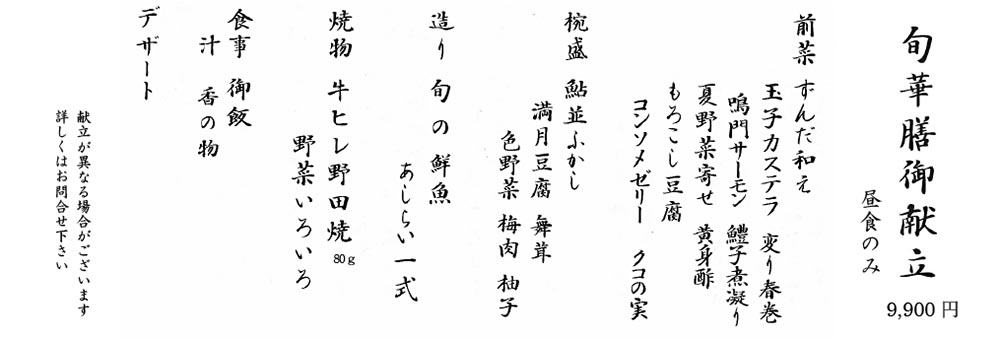 旬華膳御献立
昼食のみ
9,900円
前菜 ずんだ和え
玉子カステラ 変り春巻
鳴門サーモン 鱧子煮凝り
夏野菜寄せ 黄身酢
もろこし豆腐
コンソメゼリー クコの実
椀盛 鮎並ふかし
満月豆腐 舞茸
色野菜 梅肉 柚子
造り 旬の鮮魚
あしらい一式
焼物 牛ヒレ野田焼 80g
野菜いろいろ
食事 御飯
汁 香の物
デザート
献立が異なる場合がございます
詳しくはお問合せ下さい